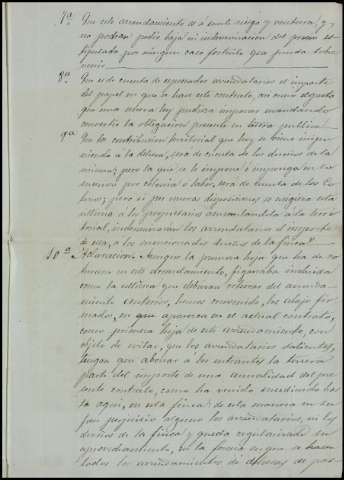 7ª Que este arrendamiento es á suerte riesgo y ventura; y
no podrán pedir baja ni indemnización del precio es-
tipulado por ningún caso fortuito que pueda sobre
venir.
8ª Será de cuenta de expresados arrendatarios el importe
del papel en que se hace este contrato, así como el gasto
que una nueva ley pudiera imponer mandando
convertir la obligación presente en tutela pública
9ª Que la contribución territorial que hoy se tiene impo-
niendo á la dehesa, será de cuenta de los dueños de la
misma; pero la que se le impone ó imponga en lo
sucesivo por colonia ó labor, será de cuenta de los co-
lonos; pero si por nuevas disposiciones se cargara esta
última á los propietarios aumentándola á la terri-
torial, indemnizarán los arrendatarios el importe
de esa, á los mencionados dueños de la finca.
10ª Aclaración. Aunque la primera hoja que ha de co-
menzar en este arrendamiento, figuraba incluida
como la última que debieran retirar del arrenda-
miento anterior, hemos convenido, los abajo fir-
mados, en que aparezca en el actual contrato,
como primera hoja de este arrendamiento, con
objeto de evitar, que los arrendatarios salientes,
tengan que abonar á los entrantes la tercera
parte del importe de una anualidad del pre-
sente contrato, como ha venido sucediendo has-
ta aquí, en esta finca: de esta manera no su-
fren perjuicio alguno los arrendatarios, ni los
dueños de la finca y queda regularizado su
aprovechamiento, en la forma en que se hacen
todos los arrendamientos de dehesas de pas-